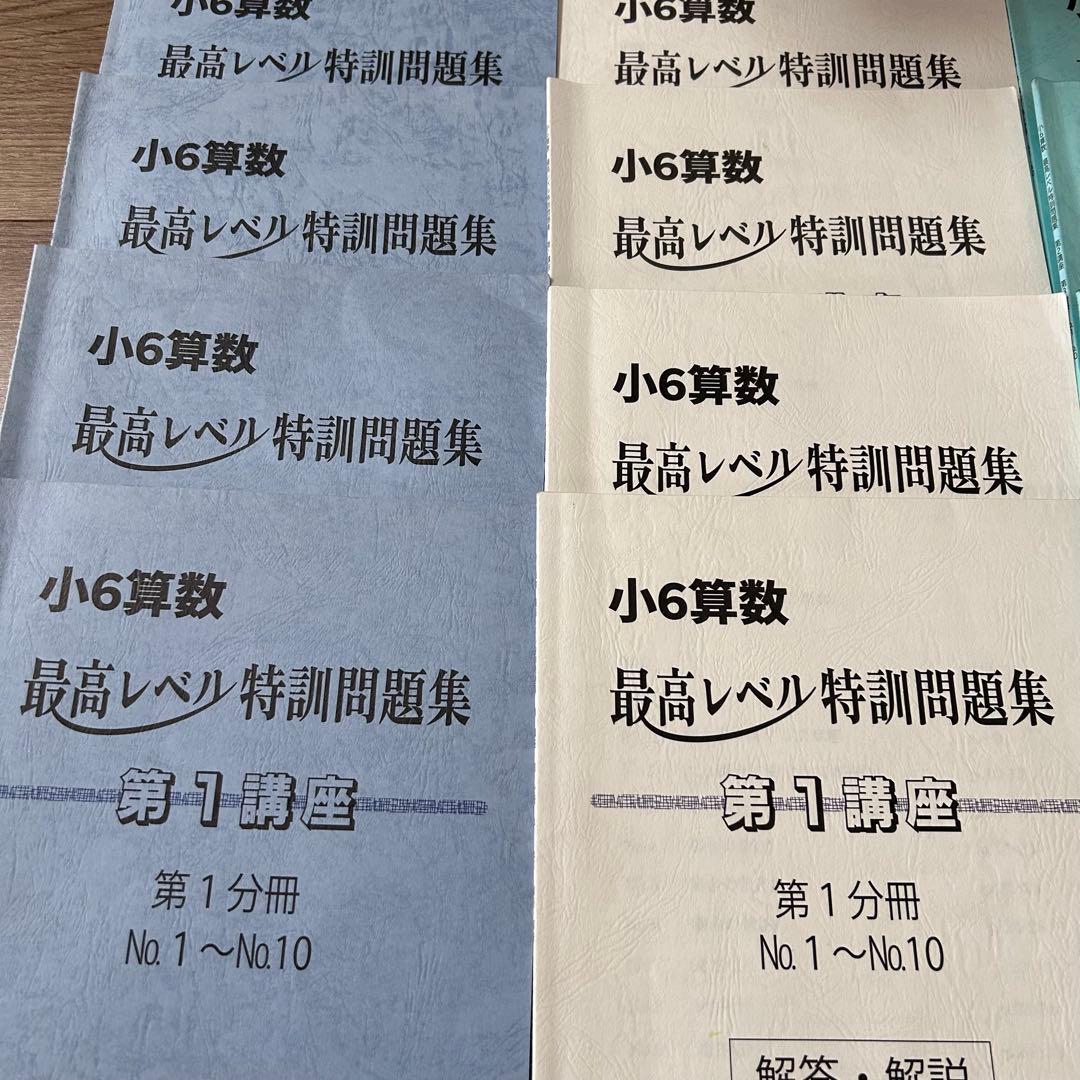 小6算数
最高レベル特訓問題集
小6算数
最高レベル特訓問題集
小6算数
最高レベル特訓問題集
小6算数
最高レベル特訓問題集
第1講座
第1分冊
No.1～No.10
小6算数
最高レベル特訓問題集
小6算数
最高レベル特訓問題集
小6算数
最高レベル特訓問題集
小6算数
最高レベル特訓問題集
第1講座
第1分冊
No.1～No.10
解答・解説